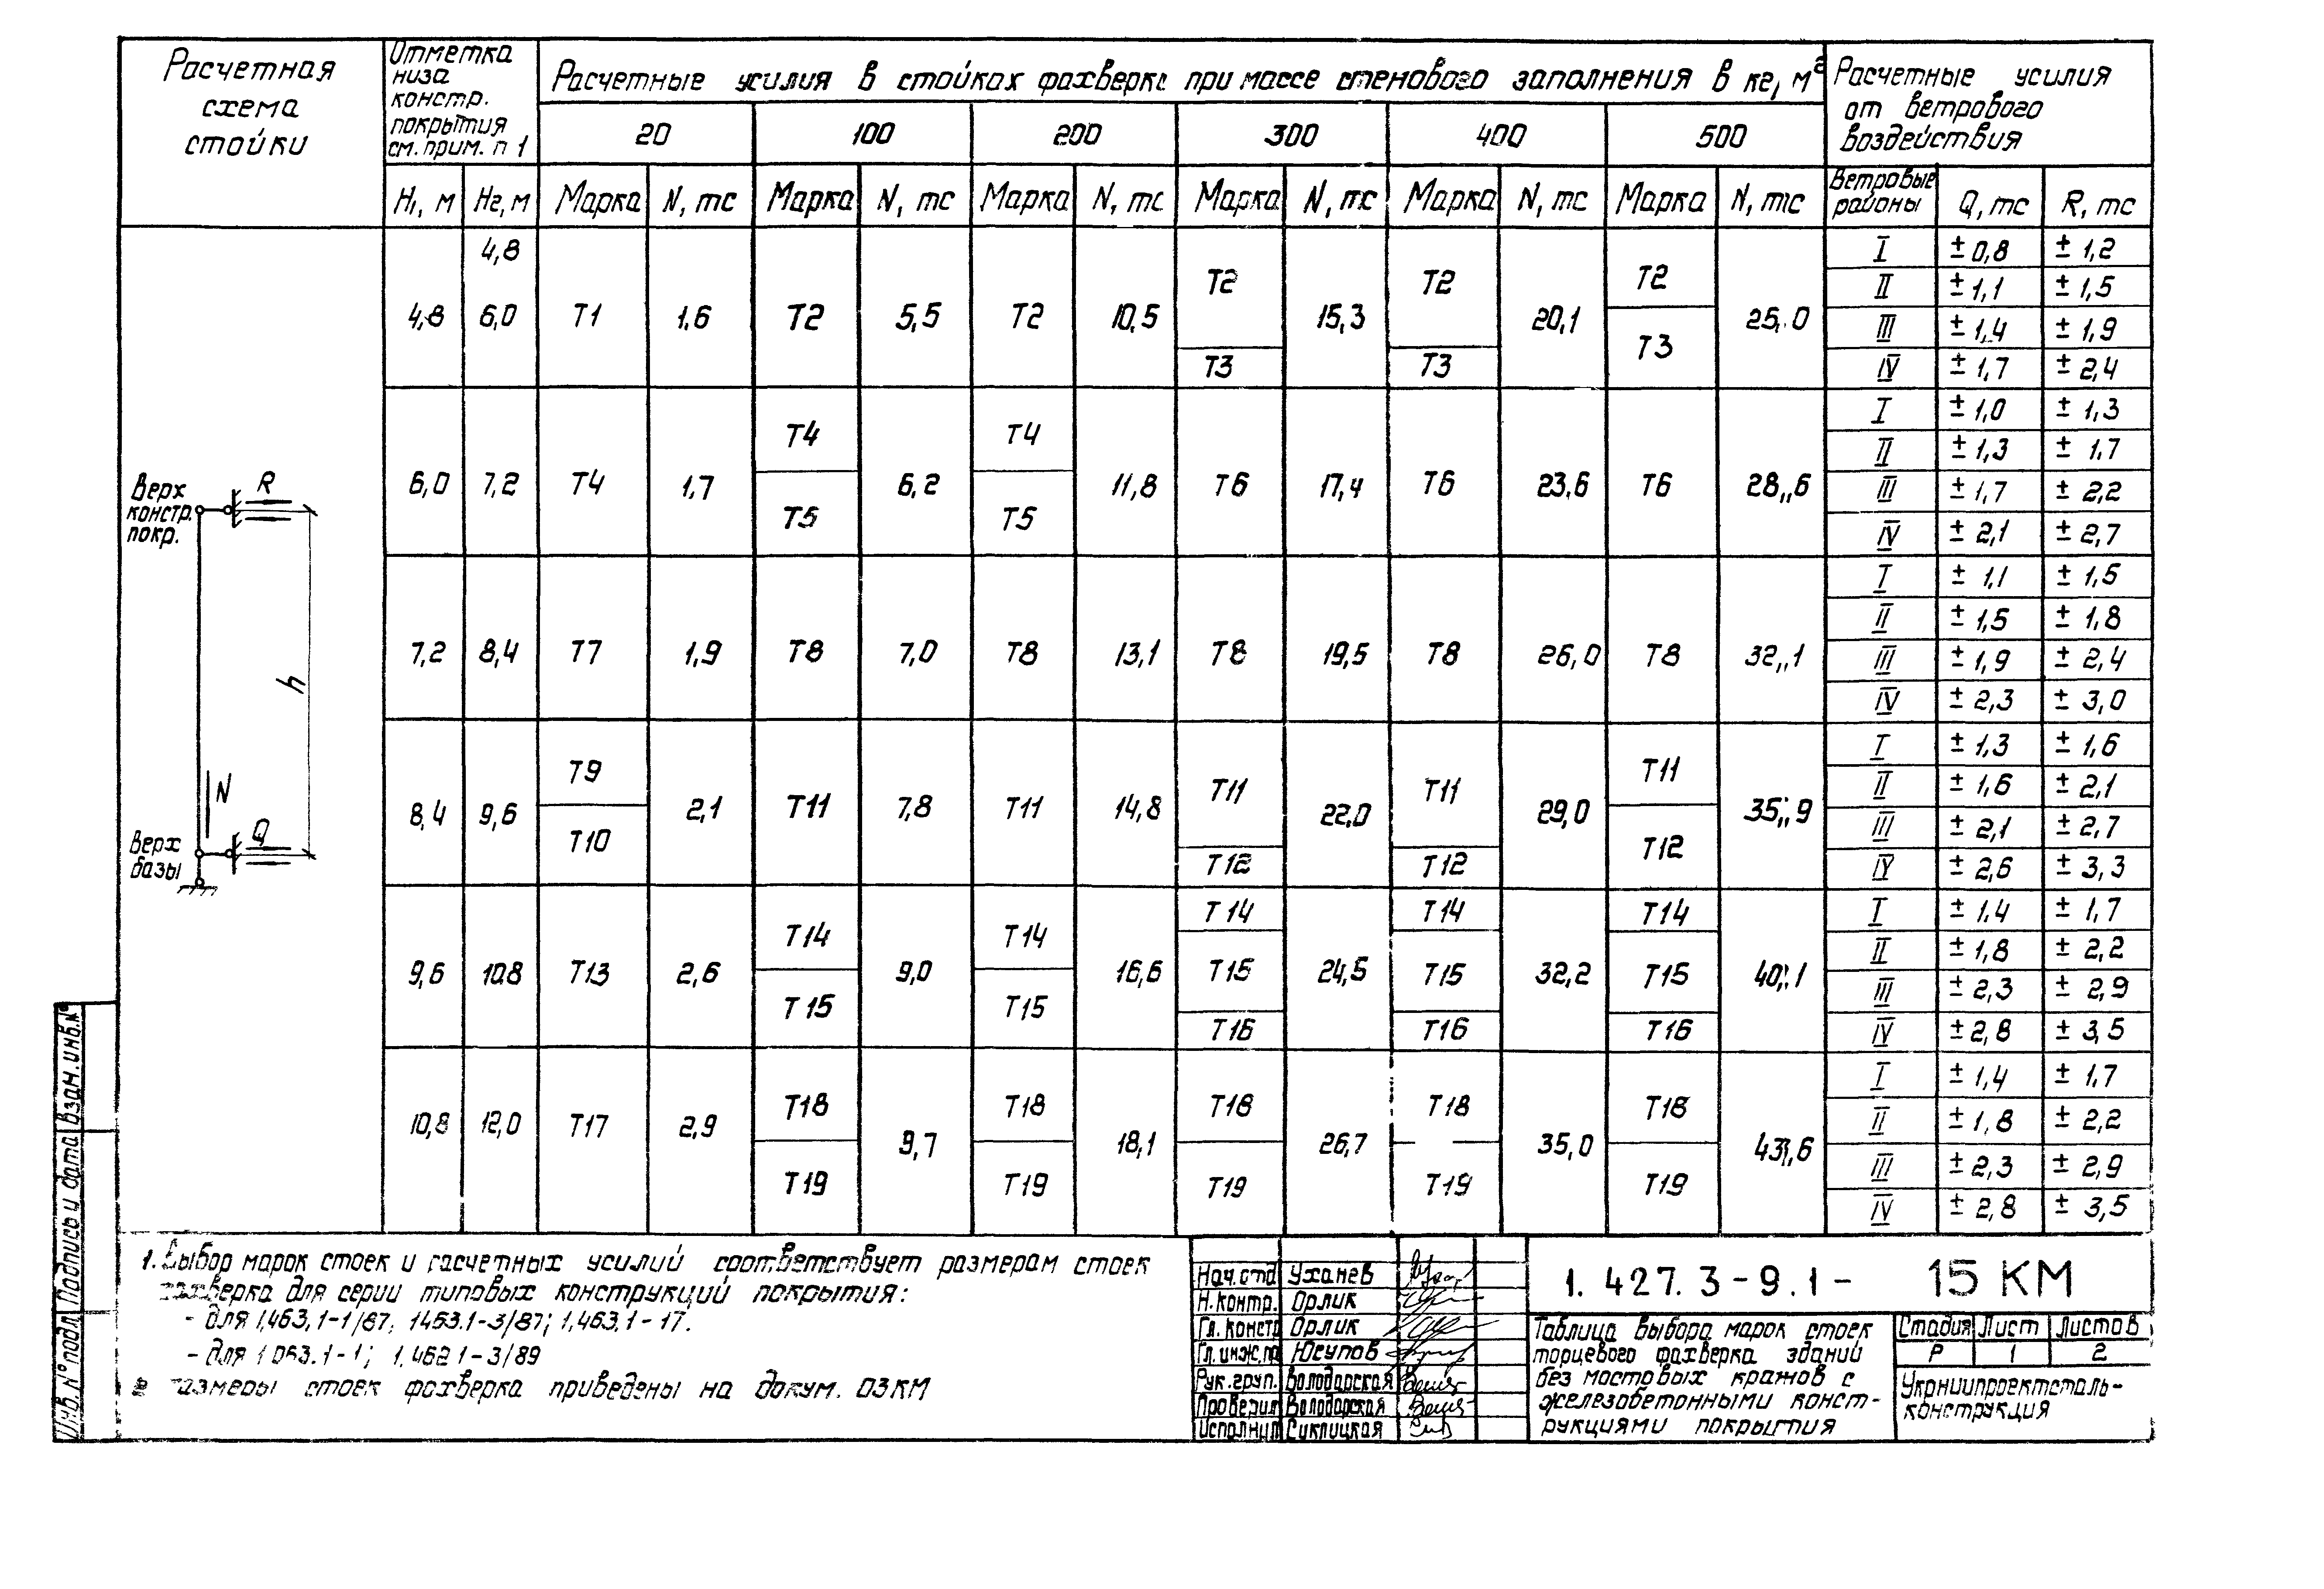 Расчетная
схема
стойки
Отметка
низа
констр.
покрытия
см. прим. п 1
Расчетные усилия в стойках фахверка при массе стенового заполнения в кг/м²
Расчетные усилия
от ветрового
воздействия
20 100 200 300 400 500
H₁, м H₂, м Марка N, тс Марка N, тс Марка N, тс Марка N, тс Марка N, тс Марка N, тс
Ветровые
районы
Q, тс R, тс
4,8
4,8 6,0 Т1 1,6 Т2 5,5 Т2 10,5 Т2 15,3 Т2 20,1 Т2 25,0
Т3 Т3 Т3
I ± 0,8 ± 1,2
II ± 1,1 ± 1,5
III ± 1,4 ± 1,9
IV ± 1,7 ± 2,4
6,0 7,2 Т4 1,7 Т4 6,2 Т4 11,8 Т6 17,4 Т6 23,6 Т6 28,6
Т5 Т5
I ± 1,0 ± 1,3
II ± 1,3 ± 1,7
III ± 1,7 ± 2,2
IV ± 2,1 ± 2,7
7,2 8,4 Т7 1,9 Т8 7,0 Т8 13,1 Т8 19,5 Т8 26,0 Т8 32,1
I ± 1,1 ± 1,5
II ± 1,5 ± 1,8
III ± 1,9 ± 2,4
IV ± 2,3 ± 3,0
8,4 9,6 Т9 2,1 Т11 7,8 Т11 14,8 Т11 22,0 Т11 29,0 Т11 35,9
Т10 Т12 Т12 Т12
I ± 1,3 ± 1,6
II ± 1,6 ± 2,1
III ± 2,1 ± 2,7
IV ± 2,6 ± 3,3
9,6 10,8 Т13 2,6 Т14 9,0 Т14 16,6 Т14 24,5 Т14 32,2 Т14 40,1
Т15 Т15 Т15 Т15 Т15
Т16 Т16 Т16
I ± 1,4 ± 1,7
II ± 1,8 ± 2,2
III ± 2,3 ± 2,9
IV ± 2,8 ± 3,5
10,8 12,0 Т17 2,9 Т18 9,7 Т18 18,1 Т18 26,7 Т18 35,0 Т18 43,6
Т19 Т19 Т19 Т19 Т19
I ± 1,4 ± 1,7
II ± 1,8 ± 2,2
III ± 2,3 ± 2,9
IV ± 2,8 ± 3,5
Верх
констр.
покр.
R
h
N
Q
Верх
базы
1. Выбор марок стоек и расчетных усилий соответствует размерам стоек
фахверка для серии типовых конструкций покрытия:
- для 1.463.1-1/87; 1463.1-3/87; 1.463.1-17.
- для 1.063.1-1; 1.462.1-3/89
2 размеры стоек фахверка приведены на докум. 03КМ
Инв. № подл. Подпись и дата Взам. инв. №
Нач. отд Уханев
Н. контр. Орлик
Гл. констр Орлик
Гл. инж. пр Юсупов
Рук. груп. Володарская
Проверил Володарская
Исполнит Сиклицкая
1. 427. 3 - 9. 1 - 15 КМ
Таблица выбора марок стоек
торцевого фахверка зданий
без мостовых кранов с
железобетонными конст-
рукциями покрытия
Стадия Лист Листов
Р 1 2
Укрниипроектсталь-
конструкция